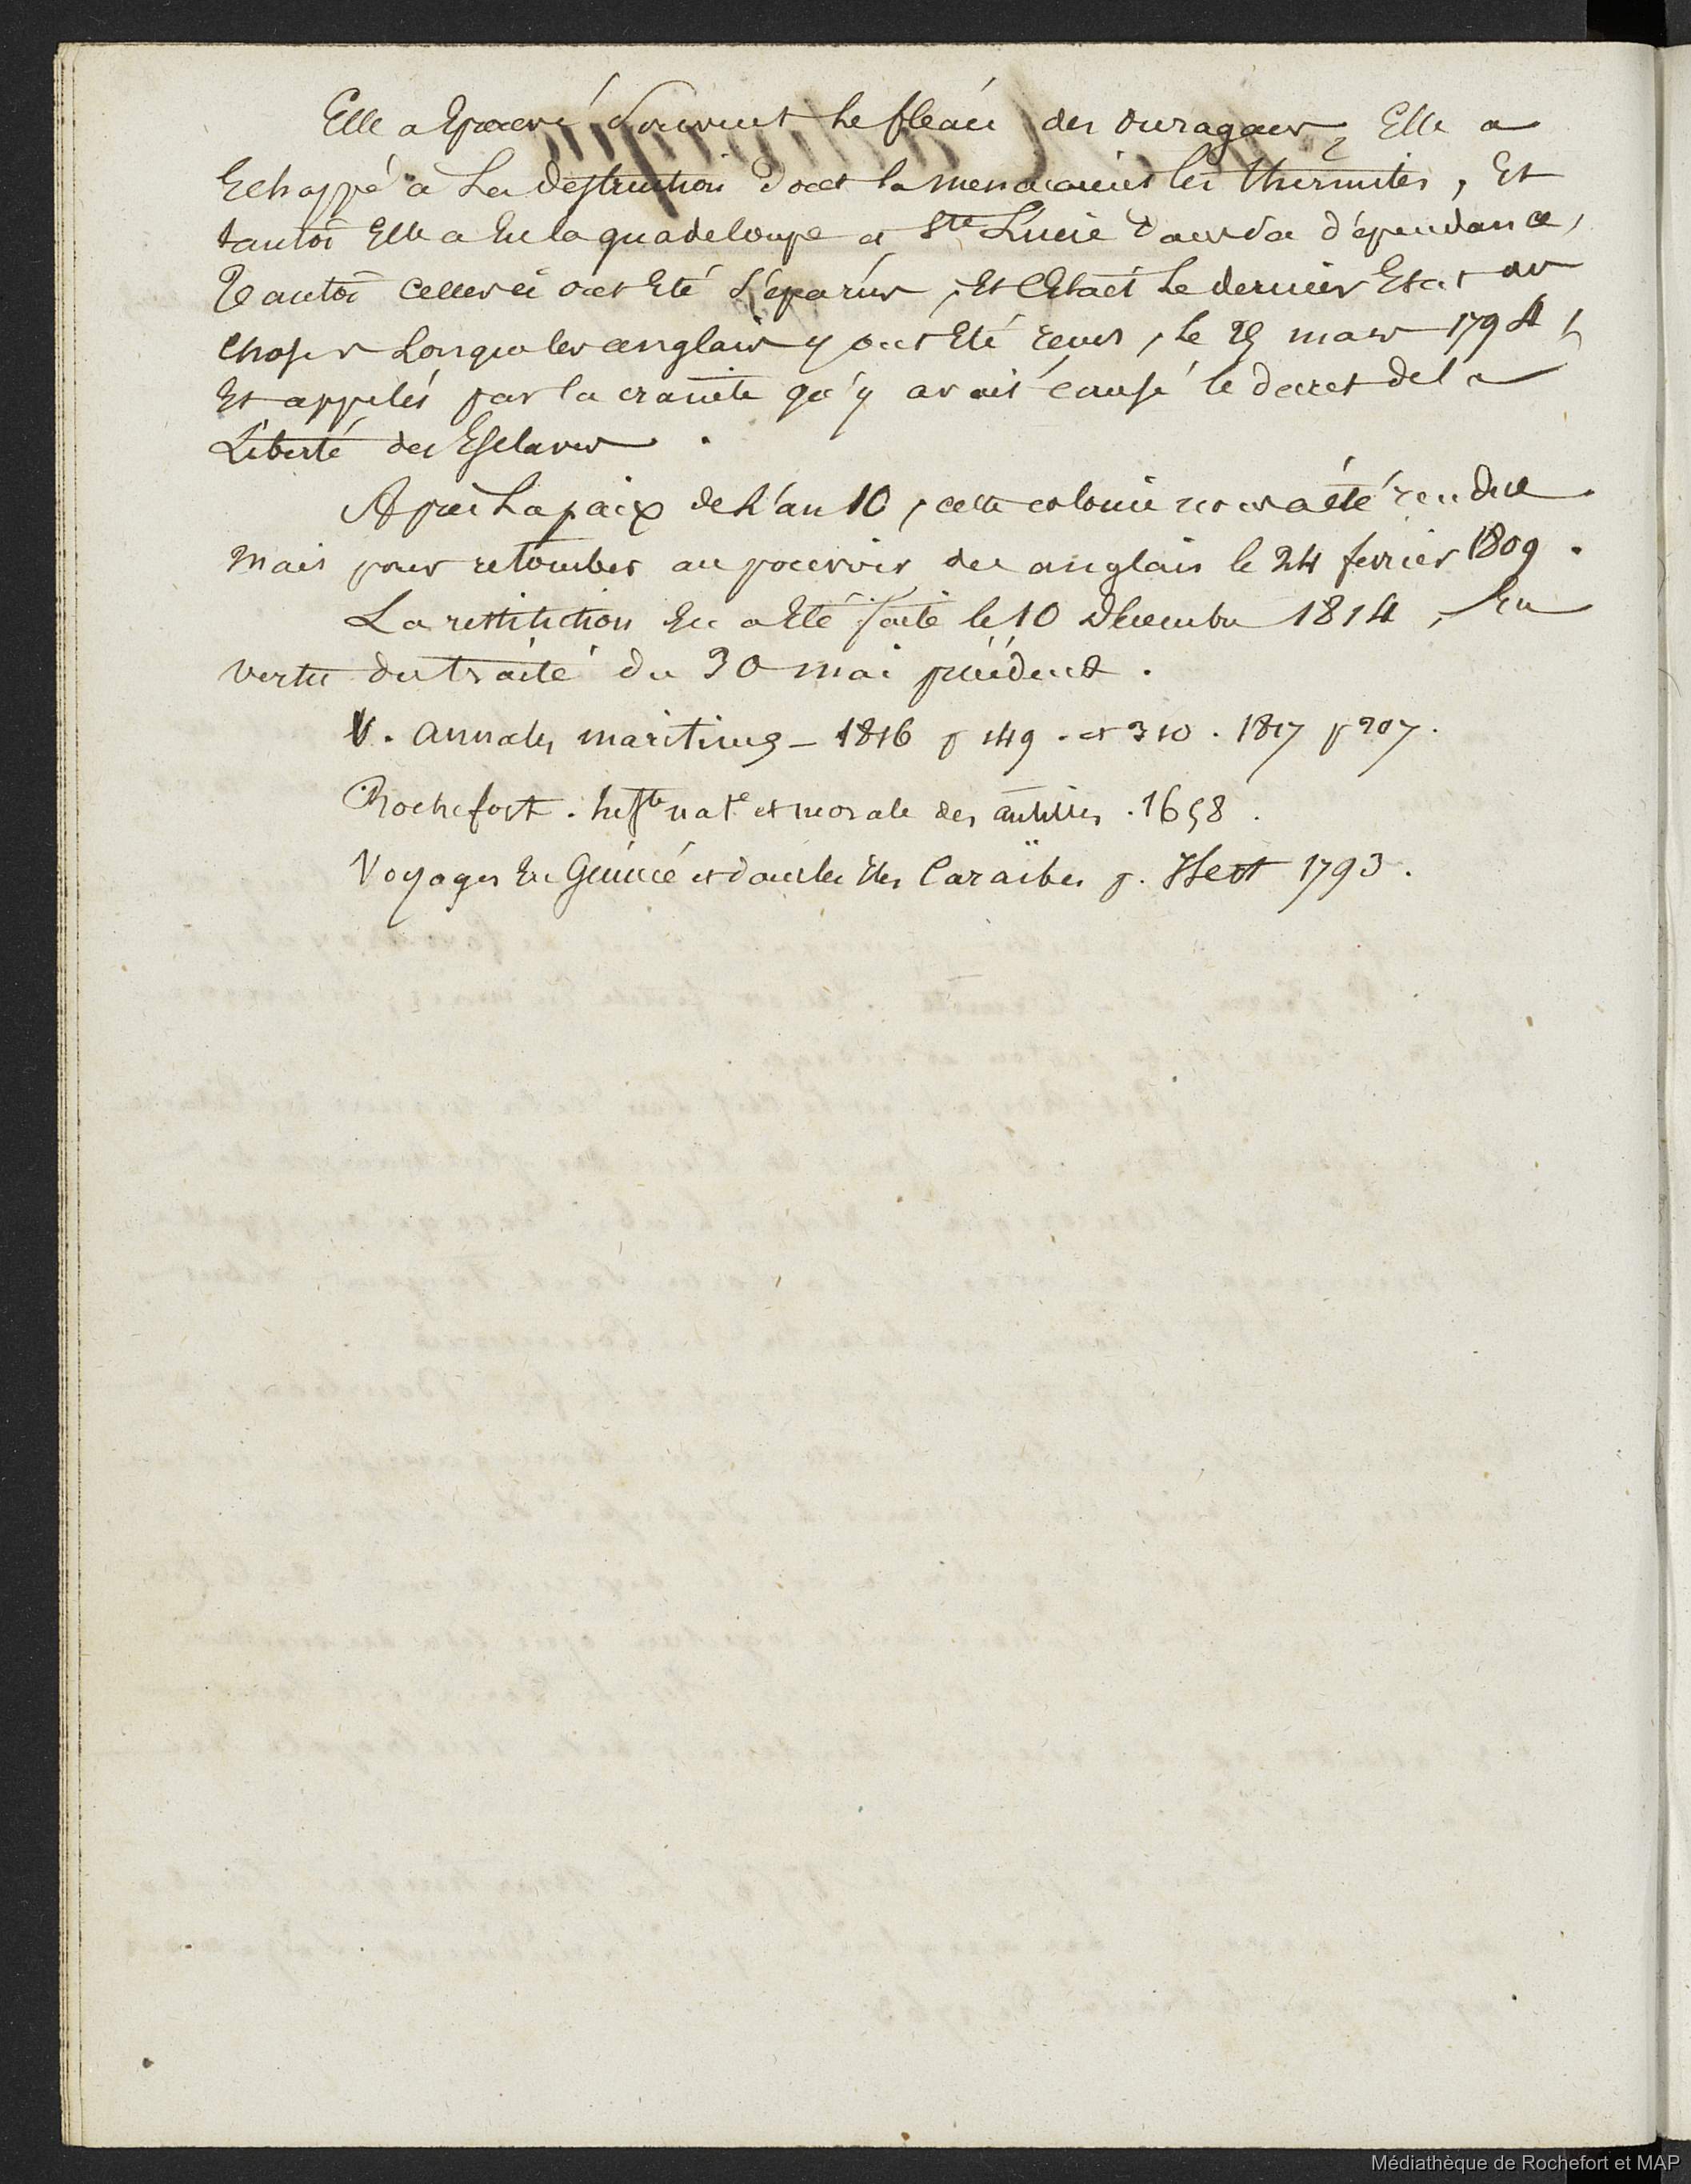 Elle a Eprouvé Souvent Le fleau des ouragans, Elle a
Echappé à La destruction dont la menacaient les thermites, Et
tantot Elle a Eu la guadeloupe et Ste Lucie dans sa dépendance,
Tantot celles ci ont Eté Séparées, Et C'Etait Le dernier Etat des
choses Lorsque les anglais y ont Eté reçus, le 25 mars 1794,
Et appelés par la crainte qu'y avait causé le decret de la
Liberté des Esclaves.
Après La paix de L'an 10, cette colonie nous a été rendue
mais pour retomber au pouvoir des anglais le 24 fevrier 1809.
La restitution En a Eté faite le 10 Decembre 1814, En
vertu du traité du 30 mai précédent.
V. annales maritimes – 1816 p 149. et 310. 1817 p 207.
Rochefort. histre natle et morale des antilles. 1658.
Voyages En Guinée et dans les Iles Caraïbes p. Isert 1793.
Médiathèque de Rochefort et MAP